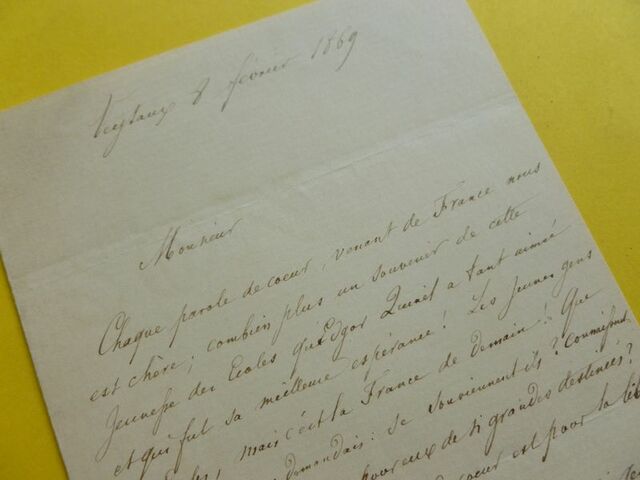 Veytaux 8 février 1869
Monsieur
Chaque parole de coeur, venant de France nous
est chère; combien plus un souvenir de cette
Jeunesse des Ecoles qu'Edgar Quinet a tant aimée
et qui fut sa meilleure espérance! Les jeunes gens
mais c'est la France de demain! Que
demandais: se souviennent ils? Connaissent
de si grandes destinées?
coeur est pour la